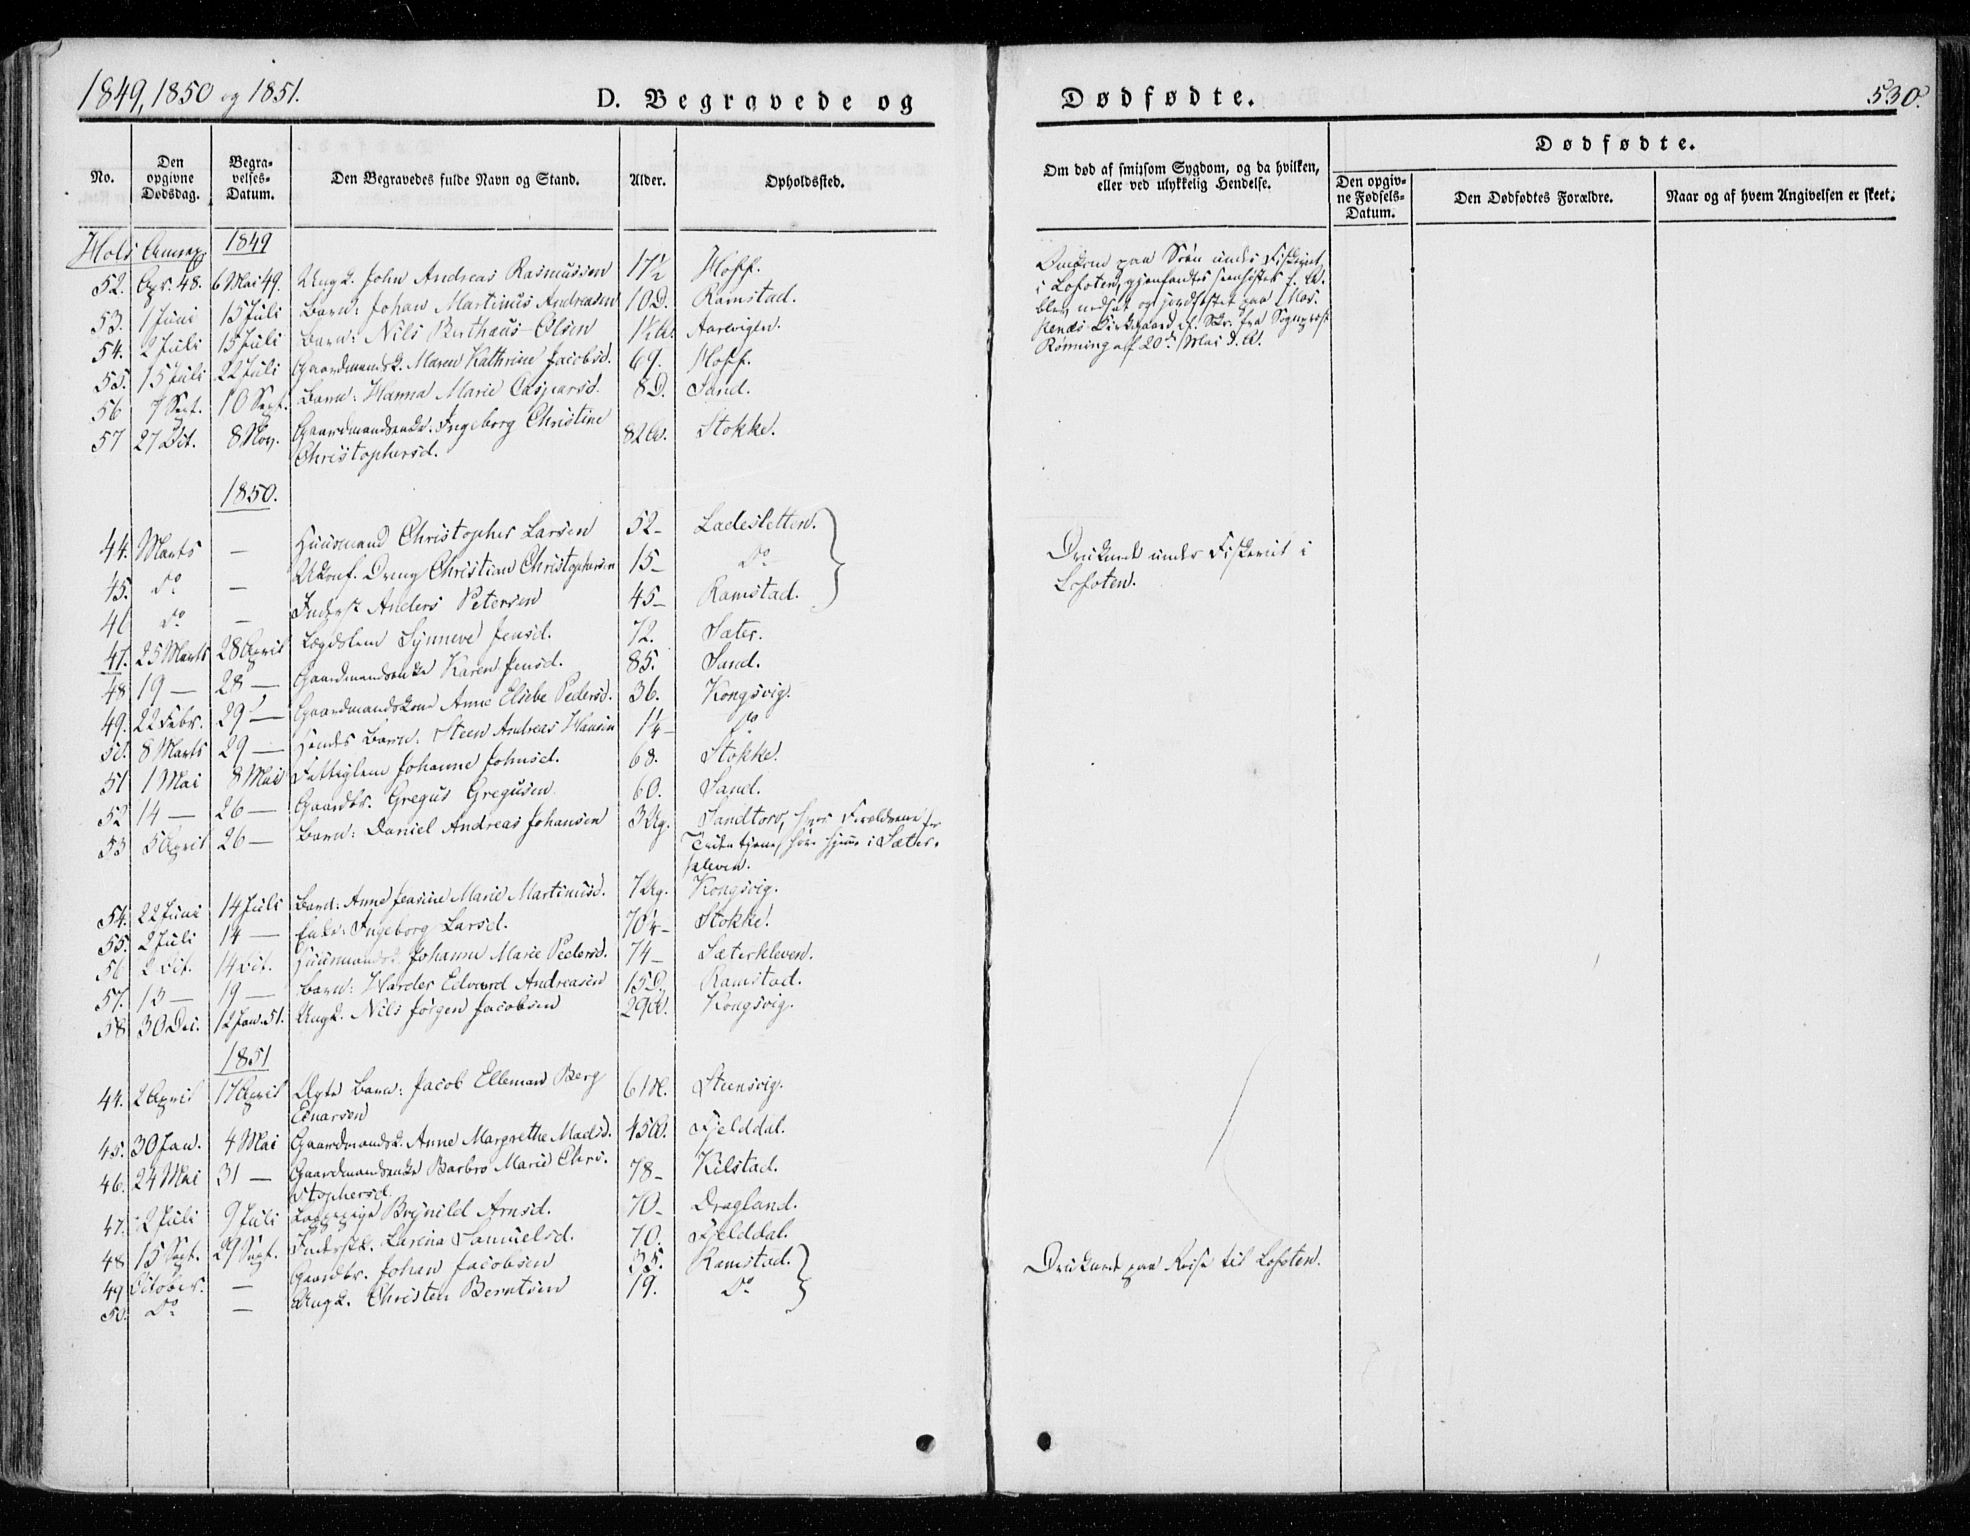 1849, 1850 og 1851.
D. Begravede og Dødfødte.
530.
No.
Den opgivne Dødsdag.
Begravelses-Datum.
Den Begravedes fulde Navn og Stand.
Alder.
Opholdssted.
Om død af smitsom Sygdom, og da hvilken, eller ved ulykkelig Hendelse.
Dødfødte.
Den opgivne Fødsels-Datum.
Den Dødfødtes Forældre.
Naar og af hvem Angivelsen er skeet.
Hols Annex 1849
52. Apr. 48. 6 Mai 49. Ungk. John Andreas Rasmussen 17½ Hoff.
Omkom paa Søen under Fiskeriet
i Lofoten, gjenfandtes
blev nedsat og jordfæstet paa
Kirkegaard
Rønning af 20de Mai d. A.
53. 1 Juni 15 Juli Barn: Johan Martinus Andreasen 10 D. Ramstad.
54. 2 Juli 15 Juli Barn: Nils Berthæus Olsen Aarevigen.
55. 15 Juli 22 Juli Gaardmandsk. Maren Kathrine Jacobsd. 69. Hoff.
56 7 Sept. 10 Sept. Barn: Hanna Marie Caspersd. 8 D. Sand.
57 27 Oct. 8 Nov. Gaardmandsenke. Ingeborg Christine 82 A. Stokke.
Christophersd.
1850.
44. Marts — Huusmand Christopher Larsen 52– Ladesletten.
Druknede under Fiskeriet i
Lofoten.
45. Do — Ukonf. Dreng Christian Christophersen 15– Do
46 Do — Inderst Anders Petersen 45– Ramstad.
47. 25 Marts 28 April Lægdslem Synneve Jensd. 72. Sæter.
48 19 — 28 — Gaardmandsenke Karen Jensd. 85. Sand.
49. 22 Febr. 29 — Gaardmandskone Anne Elsebe Pedersd. 36. Kongsvig.
50. 8 Marts 29 — Hendes Barn: Steen Andreas Hansen 1¼– Do
51 1 Mai 8 Mai Fattiglem Johanne Johnsd. 68. Stokke.
52 14 — 26 — Gaardbr. Gregus Gregusen 60. Sand.
53 5 April 26 — Barn: Daniel Andreas Johansen 3 Ug. Sandtorv, hvor Forældrene for
Tiden tjene, høre hjemme i Sæter-
kleven.
54. 22 Juni 14 Juli Barn: Anne Jensine Marie Martinusd. 7 Ug. Kongsvig.
55. 2 Juli 14 — Enke: Ingeborg Larsd. 70¼– Stokke.
56 2 Dit. 14 Dit. Huusmandsk. Johanne Marie Pedersd. 74– Sæterkleven.
57. 13 — 19 — Barn: Harder Edvard Andreasen 15 D. Ramstad.
58 30 Dec. 12 Jan. 51. Ungk. Nils Jørgen Jacobsen 29 A. Kongsvig.
1851
44. 2 April 17 April Ægte Barn: Jacob Elleman Berg Steensvig.
Einarsen
45. 30 Jan. 4 Mai Gaardmandsk. Anne Margrethe Madsd. 45 A. Fjelddal.
46. 24 Mai 31 — Gaardmandsenke Barbro Marie Chri- 78– Kilstad.
stophersd.
47. 2 Juli 9 Juli Brynild Arnsd. 70– Dragland.
48 15 Sept. 29 Sept. Larina Samuelsd. 70. Fjelddal.
49 October. — Gaardbr. Johan Jacobsen 35. Ramstad.
Druknede paa Reise til Lofoten.
50. Do — Ungk. Christen Berntsen 19. Do